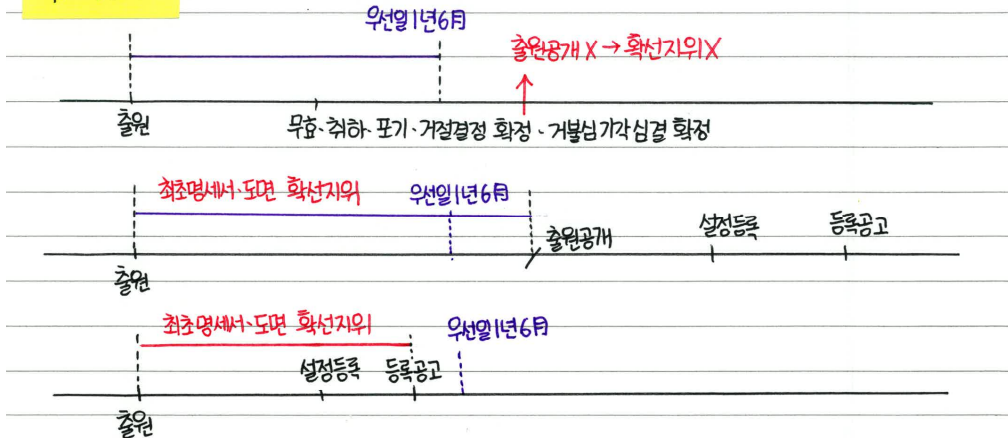 우선일 1년 6月
출원공개 X → 확선지위 X
출원
무효·취하·포기·거절결정 확정·거불심기각심결 확정
최초명세서·도면 확선지위
우선일 1년 6月
출원공개
설정등록
등록공고
출원
최초명세서·도면 확선지위
우선일 1년 6月
설정등록
등록공고
출원